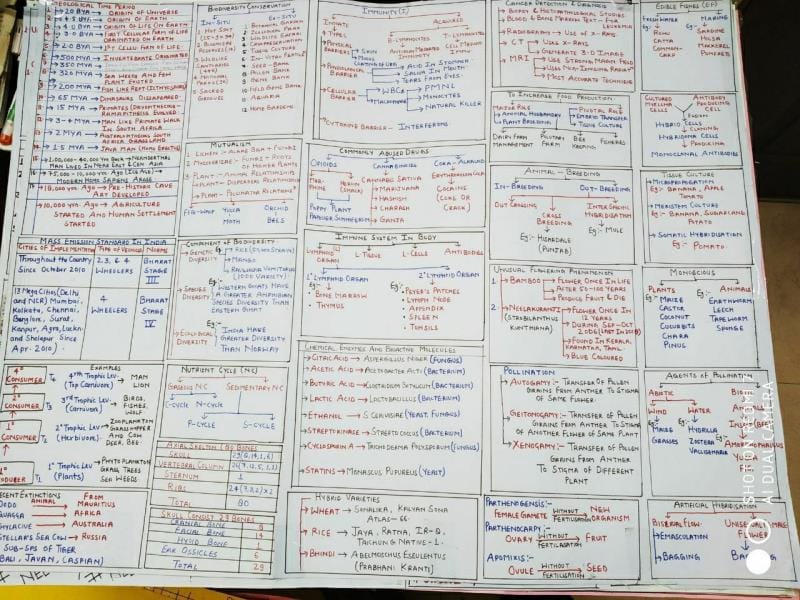 GEOLOGICAL TIME PERIOD
→ ORIGIN OF UNIVERSE
→ ORIGIN OF EARTH
→ ORIGIN OF LIFE ON EARTH
→ FIRST CELLULAR FORM OF LIFE
ORIGINATED ON EARTH
2.0 BYA → 1st CELLU. FORM OF LIFE
500 MYA → INVERTEBRATE ORIGINATED
350 MYA →
320 MYA → SEA WEEDS AND FEW
PLANT EXISTED
200 MYA → FISH LIKE REPT. (ICTHYOSAURS)
65 MYA → DINASOURS DISSAPEARED
15 MYA → PRIMATES (DRYOPITHECUS-
RAMAPITHECUS EVOLVED)
3-4 MYA → MAN LIKE PRIMATE WALK
IN SOUTH AFRICA
2 MYA → AUSTRALOPITHECUS SOUTH
AFRICA GRASSLAND
1.5 MYA → JAVA MAN (HOMO ERECTUS)
1,00,000-40,000 yrs. Back → NEANDERTHAL
MAN LIVED IN NEAR EAST & CEN. ASIA
75,000-10,000 yrs. Ago (ICE AGE) →
MODERN HOMO SAPIENS AROSE
18,000 yrs. Ago → PRE-HISTORIC CAVE
ART DEVELOPED
10,000 yrs. Ago → AGRICULTURE
STARTED AND HUMAN SETTLEMENT
STARTED
MASS EMISSION STANDARD IN INDIA
CITIES OF IMPLEMENTATION TYPE OF VEHICLE NORMS
Throughout the Country 2,3, & 4 BHARAT
Since October 2010 WHEELERS STAGE
III
13 Mega Cities (Delhi
and NCR) Mumbai,
Kolkata, Chennai,
Banglore, Surat,
Kanpur, Agra, Luckn.
and Sholapur Since
Apr. 2010)
4
WHEELERS
BHARAT
STAGE
IV
EXAMPLES
4° CONSUMER T4 4th Trophic Lev. (Top Carnivore) → MAN
LION
3° CONSUMER T3 3rd Trophic Lev. (Carnivore) → BIRDS,
FISHES,
WOLF
CONSUMER T2 2° Trophic Lev. (Herbivore) → ZOOPLANKTON
GRASSHOPPER
AND COW
DEER, BEE
T1 1° Trophic Lev. (Plants) → PHYTO PLANKTON
GRASS, TREES
SEA WEEDS
RECENT EXTINCTIONS
ANIMAL FROM
DODO → MAURITIUS
QUAGGA → AFRICA
THYLACINE → AUSTRALIA
STELLAR'S SEA COW → RUSSIA
SUB-SPS OF TIGER
BALI, JAVAN, CASPIAN)
BIODIVERSITY CONSERVATION
IN-SITU
1. HOT SPOT
2. BIOSPHERE
RESERVES
3. WILDLIFE
SANCTUARIES
4. NATIONAL
PARKS
5. SACRED
GROVES
EX-SITU
1. BOTANICAL GARDEN
2. ZOOLOGICAL PARK
3. WILDLIFE SAFARI
5. TISSUE CULTURE
7. SEED-BANK
8. POLLEN BANK
9. GENE BANK
10. FIELD GENE BANK
11. AQUARIA
12. HOME GARDENS
MUTUALISM
1. LICHEN → ALGAE BGA + FUNGI
2. MYCORRHIZAE → FUNGI + ROOTS
OF HIGHER PLANTS
3. PLANT - ANIMAL RELATIONSHIP
→ PLANT - DISPERSAL RELATIONSHIP
→ PLANT - POLLINATOR RELATIONS
FIG-WASP YUCCA MOTH ORCHID BEES
COMPONENT OF BIODIVERSITY
GENETIC DIVERSITY
Eg:- RICE
MANGO
RAUWOLFIA VOMITORIA
(1000 VARIETY)
SPECIES DIVERSITY
Eg:-
WESTERN GHATS HAVE
A GREATER AMPHIBIAN
SPECIES DIVERSITY THAN
EASTERN GHAT
ECOLOGICAL DIVERSITY
Eg:-
INDIA HAVE
GREATER DIVERSITY
THAN NORWAY
NUTRIENT CYCLE (NC)
GASEOUS NC SEDIMENTARY NC
C-CYCLE N-CYCLE
P-CYCLE S-CYCLE
AXIAL SKELETON (80 BONES)
SKULL 29 (8,14,1,6)
VERTEBRAL COLUMN 26 (7,12,5,1,1)
STERNUM 1
RIBS 24
TOTAL 80
SKULL CONSIST 29 BONES
CRANIAL BONE 8
FACIAL BONE 14
HYOID BONE 1
EAR OSSICLES 6
TOTAL 29
IMMUNITY (I)
INNATE
4 TYPES
ACQUIRED
B-LYMPHOCYTES
ANTIBODY MEDIATED
IMMUNITY
T-LYMPHOCYTES
CELL MEDIATED
IMMUNITY
PHYSICAL BARRIER → SKIN
MUCUS
PHYSIOLOGICAL BARRIER → ACID IN STOMACH
SALIVA IN MOUTH
TEARS FROM EYES
CELLULAR BARRIER → WBCs → PMNL
MONOCYTES
NATURAL KILLER
MACROPHAGE
CYTOKINE BARRIER → INTERFERONS
COMMONLY ABUSED DRUGS
OPIOIDS CANNABINOIDS COCA-ALKALOID
MORPHINE HEROIN (SMACK)
POPPY PLANT
PAPAVER SOMNIFERUM
CANNABIS SATIVA
→ MARIJUANA
→ HASHISH
→ CHARASH
→ GANJA
ERYTHROXYLUM COCA
COCAINE
(COKE OR
CRACK)
IMMUNE SYSTEM IN BODY
LYMPHOID ORGAN L-TISSUE L-CELLS ANTIBODIES
1° LYMPHOID ORGAN
Eg:-
• BONE MARROW
• THYMUS
2° LYMPHOID ORGAN
Eg:-
• PEYER'S PATCHES
• LYMPH NODE
• APPENDIX
• SPLEEN
• TONSILS
CHEMICAL ENZYMES AND BIOACTIVE MOLECULES
• CITRIC ACID → ASPERGILLUS NIGER (FUNGUS)
• ACETIC ACID → ACETOBACTER ACTI (BACTERIUM)
• BUTYRIC ACID → CLOSTRIDIUM BUTYLICUM (BACTERIUM)
• LACTIC ACID → LACTOBACILLUS (BACTERIUM)
• ETHANOL → S. CERVISIAE (YEAST, FUNGUS)
• STREPTOKINASE → STREPTOCOCCUS (BACTERIUM)
• CYCLOSPORIN A → TRICHODERMA POLYSPORUM (FUNGUS)
• STATINS → MONASCUS PUPUREUS (YEAST)
HYBRID VARIETIES
• WHEAT → SONALIKA, KALYAN SONA
ATLAS-66
• RICE → JAYA, RATNA, IR-8,
TAICHUNG NATIVE-1.
• BHINDI → ABELMOSCHUS ESCULENTUS
(PRABHANI KRANTI)
CANCER DETECTION & DIAGNOSIS
• BIOPSY & HISTOPATHOLOGICAL STUDIES
• BLOOD & BONE MARROW TEST → FOR
LEUKEMIA
• RADIOGRAPHY → USE OF X-RAYS
• CT → USE X-RAYS
GENERATE 3-D IMAGE
• MRI → USE STRONG MAGN. FIELD
USES NON-IONISING RADIATION
MOST ACCURATE TECHNIQUE
TO INCREASE FOOD PRODUCTION
MAJOR RISE
→ ANIMAL HUSBANDRY
→ PLANT BREEDING
PIVOTAL ROLE
→ EMBRYO TRANSFER
→ TISSUE CULTURE
DAIRY FARM MANAGEMENT
POULTRY FARM
BEE KEEPING
FISHERIES
ANIMAL - BREEDING
IN-BREEDING OUT-BREEDING
OUT CROSSING CROSS BREEDING INTERSPECIFIC HYBRIDISATION
Eg:- HISARDALE
(PUNJAB)
Eg:- MULE
UNUSUAL FLOWERING PHENOMENON
1. BAMBOO → FLOWER ONCE IN LIFE
AFTER 50-100 YEARS
→ PRODUCE FRUIT & DIE
2. NEELAKURANJI
(STROBILANTHUS
KUNTHIANA)
→ FLOWER ONCE IN
12 YEARS
→ DURING SEP-OCT
2006
→ FOUND IN KERALA,
KARNATAKA, TAMIL
→ BLUE COLOURED
POLLINATION
• AUTOGAMY:- TRANSFER OF POLLEN
GRAINS FROM ANTHER TO STIGMA OF
SAME FLOWER.
• GEITONOGAMY:- TRANSFER OF POLLEN
GRAINS FROM ANTHER TO STIGMA
OF ANOTHER FLOWER OF SAME PLANT
• XENOGAMY:- TRANSFER OF POLLEN
GRAINS FROM ANTHER
TO STIGMA OF DIFFERENT
PLANT
PARTHENOGENSIS:-
FEMALE GAMETE WITHOUT FERTILISATION → NEW
ORGANISM
PARTHENOCARPY:-
OVARY WITHOUT FERTILISATION → FRUIT
APOMIXIS:-
OVULE WITHOUT FERTILISATION → SEED
EDIBLE FISHES (EF)
FRESH WATER
Eg:-
ROHU
CATLA
COMMON-
CARP
MARINE
Eg:-
HILSA
SARDINE
MACKEREL
POMFRETS
CULTURED MYELOMA CELLS
ANTIBODY PRODUCING CELL
FUSION
HYBRID CELLS
CLONING
HYBRIDOMA CELLS
PRODUCING
MONOCLONAL ANTIBODIES
TISSUE CULTURE
• MICROPROPAGATION
Eg:- BANANA, APPLE
TOMATO
• MERISTEM CULTURE
Eg:- BANANA, SUGARCANE
POTATO
• SOMATIC HYBRIDISATION
Eg:- POMATO.
MONOECIOUS
PLANTS
Eg:-
MAIZE
CASTOR
COCONUT
CUCURBITS
CHARA
PINUS
ANIMALS
Eg:-
EARTHWORM
LEECH
TAPEWORM
SPONGE
AGENTS OF POLLINATION
ABIOTIC
WIND
Eg:-
MAIZE
GRASSES
WATER
Eg:-
HYDRILLA
ZOSTERA
VALLISNERIA
ARTIFICIAL HYBRIDISATION
BISEXUAL FLOW.
→ EMASCULATION
→ BAGGING
FLOWER
SHOT ON REDMI
AI DUAL CAMERA